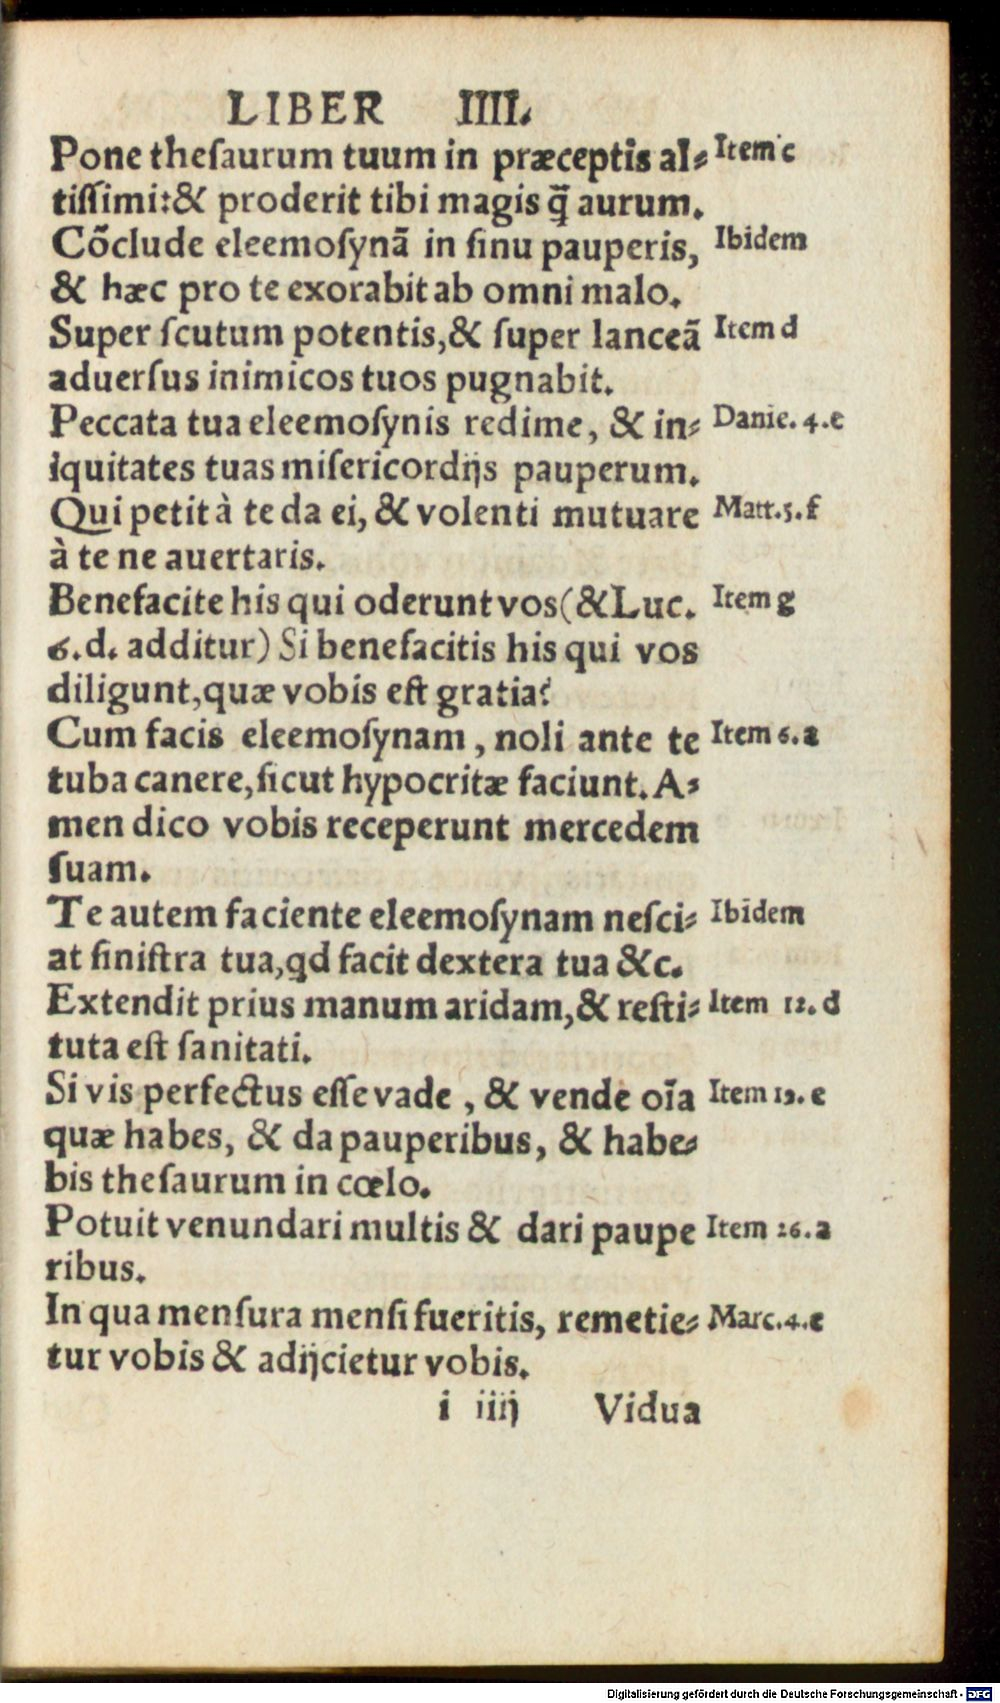 LIBER IIII.
Pone theſaurum tuum in præceptis al⸗ Item c
tiſſimi:& proderit tibi magis q̃ aurum.
Cõclude eleemoſynã in ſinu pauperis, Ibidem
& hæc pro te exorabit ab omni malo.
Super ſcutum potentis,& ſuper lanceã Item d
aduerſus inimicos tuos pugnabit.
Peccata tua eleemoſynis redime, & in⸗ Danie. 4.e
iquitates tuas miſericordijs pauperum.
Qui petit à te da ei, & volenti mutuare Matt.5.f
à te ne auertaris.
Benefacite his qui oderunt vos(&Luc. Item g
6.d. additur) Si benefacitis his qui vos
diligunt,quæ vobis eſt gratia?
Cum facis eleemoſynam, noli ante te Item 6.a
tuba canere,ſicut hypocritæ faciunt. A⸗
men dico vobis receperunt mercedem
ſuam.
Te autem faciente eleemoſynam neſci⸗ Ibidem
at ſiniſtra tua,qd facit dextera tua &c.
Extendit prius manum aridam,& reſti⸗ Item 12.d
tuta eſt ſanitati.
Si vis perfectus eſſe vade, & vende oĩa Item 19.e
quæ habes, & da pauperibus, & habe⸗
bis theſaurum in cœlo.
Potuit venundari multis & dari paupe Item 26.a
ribus.
In qua menſura menſi fueritis, remetie⸗ Marc.4.c
tur vobis & adijcietur vobis.
i iiij Vidua
Digitalisierung gefördert durch die Deutsche Forschungsgemeinschaft - DFG